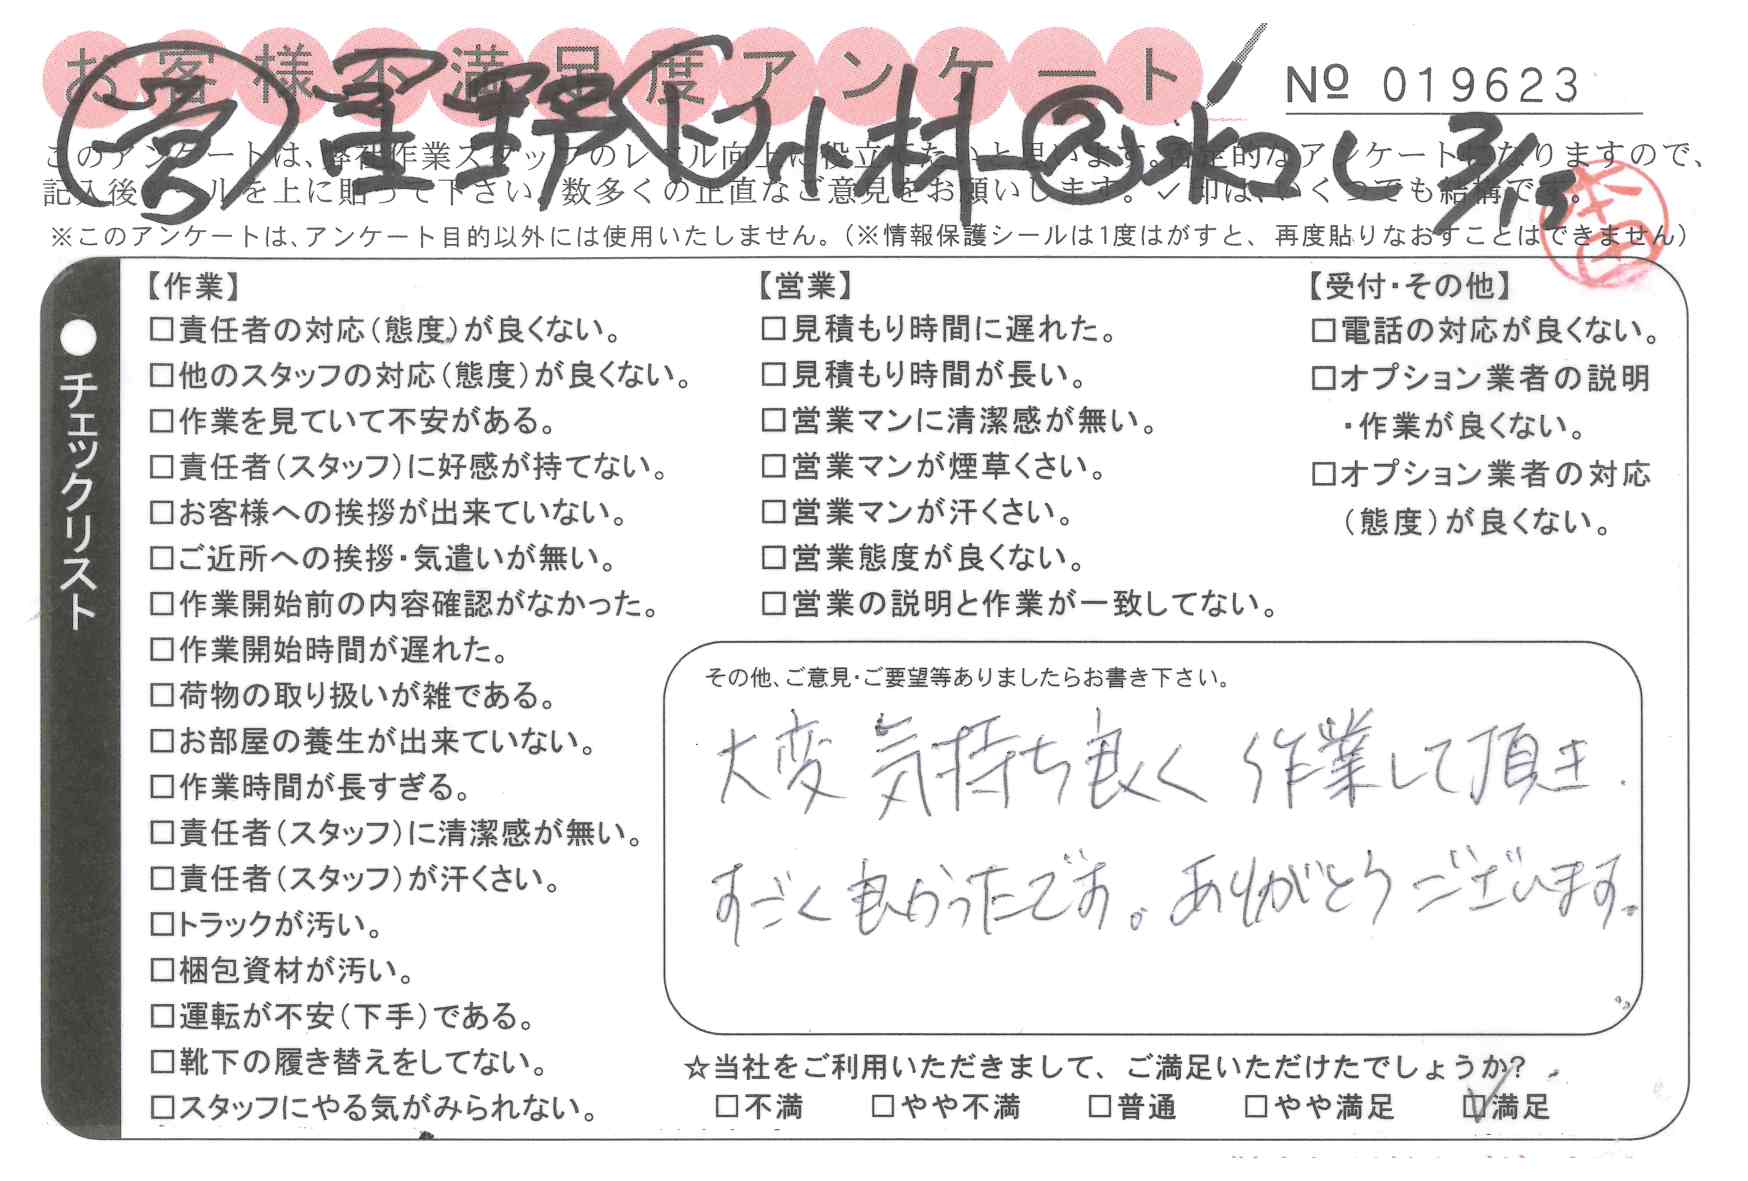 お客様不満足度アンケート
№ 019623
営 星野 小林 水口 3/13
このアンケートは、弊社作業スタッフのレベル向上に役立てたいと思います。否定的なアンケートになりますので、
記入後シールを上に貼って下さい。数多くの正直なご意見をお願いします。✓印は、いくつでも結構です。
※このアンケートは、アンケート目的以外には使用いたしません。（※情報保護シールは1度はがすと、再度貼りなおすことはできません）
●チェックリスト
【作業】
□責任者の対応（態度）が良くない。
□他のスタッフの対応（態度）が良くない。
□作業を見ていて不安がある。
□責任者（スタッフ）に好感が持てない。
□お客様への挨拶が出来ていない。
□ご近所への挨拶・気遣いが無い。
□作業開始前の内容確認がなかった。
□作業開始時間が遅れた。
□荷物の取り扱いが雑である。
□お部屋の養生が出来ていない。
□作業時間が長すぎる。
□責任者（スタッフ）に清潔感が無い。
□責任者（スタッフ）が汗くさい。
□トラックが汚い。
□梱包資材が汚い。
□運転が不安（下手）である。
□靴下の履き替えをしてない。
□スタッフにやる気がみられない。
【営業】
□見積もり時間に遅れた。
□見積もり時間が長い。
□営業マンに清潔感が無い。
□営業マンが煙草くさい。
□営業マンが汗くさい。
□営業態度が良くない。
□営業の説明と作業が一致してない。
【受付・その他】
□電話の対応が良くない。
□オプション業者の説明
・作業が良くない。
□オプション業者の対応
（態度）が良くない。
その他、ご意見・ご要望等ありましたらお書き下さい。
大変 気持ち良く 作業して頂き
すごく良かったです。ありがとうございます。
☆当社をご利用いただきまして、ご満足いただけたでしょうか?
□不満 □やや不満 □普通 □やや満足 ☑満足